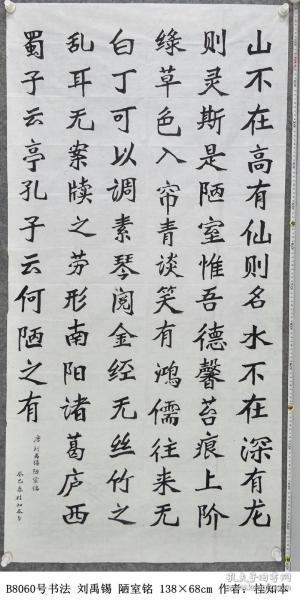 山不在高有仙则名水不在深有龙
则灵斯是陋室惟吾德馨苔痕上阶
绿草色入帘青谈笑有鸿儒往来无
白丁可以调素琴阅金经无丝竹之
乱耳无案牍之劳形南阳诸葛庐西
蜀子云亭孔子云何陋之有
唐刘禹锡陋室铭
癸巳春桂知本书
B8060号书法 刘禹锡 陋室铭 138×68cm 作者：桂知本